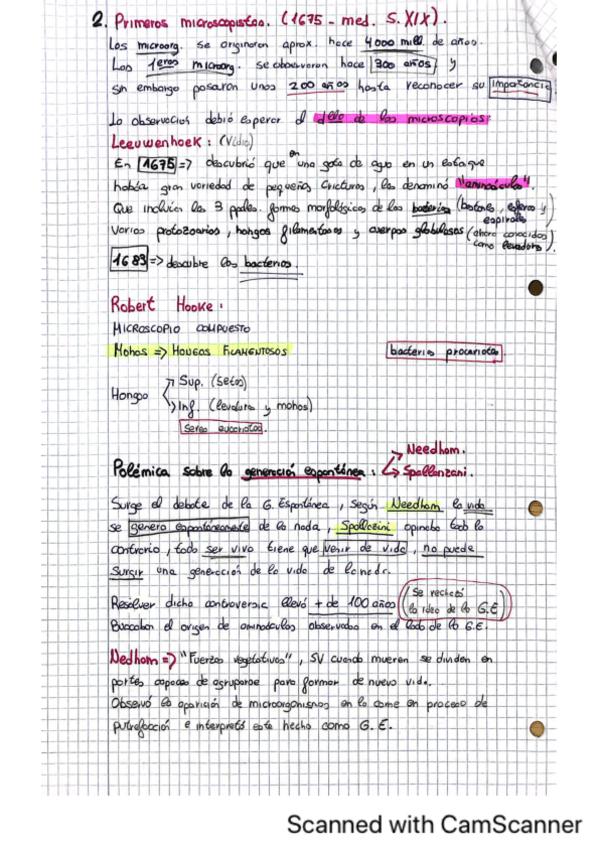 2. Primeros microscopistas. (1675 - med. S. XIX).
Los microorg. se originaron aprox. hace 4000 mill. de años.
Los 1eros microorg. se observaron hace 300 años y
sin embargo pasaron unos 200 años hasta reconocer su importancia
La observación debió esperar el dllo de los microscopios.
Leeuwenhoek: (Vídeo)
En 1675 => descubrió que en una gota de agua en un estanque
había gran variedad de pequeñas criaturas, las denominó "animáculos".
Que incluían las 3 ppales. formas morfológicas de las bacterias (bastones, esferas y espirales)
Varios protozoarios, hongos filamentosos y cuerpos globulosos (ahora conocidos como levaduras).
1683 => descubre las bacterias.
Robert Hooke:
MICROSCOPIO COMPUESTO
Mohos => HONGOS FILAMENTOSOS
bacterias procariotas.
Hongos
Sup. (setas)
Inf. (levaduras y mohos)
Seres eucariotas.
Polémica sobre la generación espontánea:
Needham.
Spallanzani.
Surge el debate de la G. Espontánea, según Needham la vida
se genera espontáneamente de la nada, Spallazini opinaba todo lo
contrario, todo ser vivo tiene que venir de vida, no puede
surgir una generación de la vida de la nada.
Resolver dicha controversia llevó + de 100 años (Se rechazó la idea de la G.E)
Buscaban el origen de animáculos observados en el lado de la G.E.
Nedham => "Fuerzas vegetativas", SV cuando mueren se dividen en
partes capaces de agruparse para formar de nuevo vida.
Observó la aparición de microorganismos en la carne en proceso de
putrefacción e interpretó este hecho como G. E.
Scanned with CamScanner